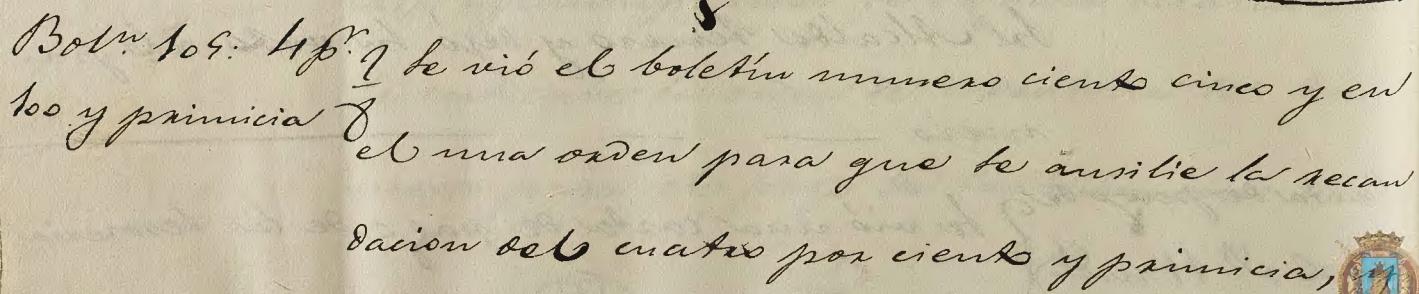 Botn. 105: 4 pr.
100 y primicia
Se vió el boletin numero ciento cinco y en
el una orden para que se ausilie la recau
dacion del cuatro por ciento y primicia, y